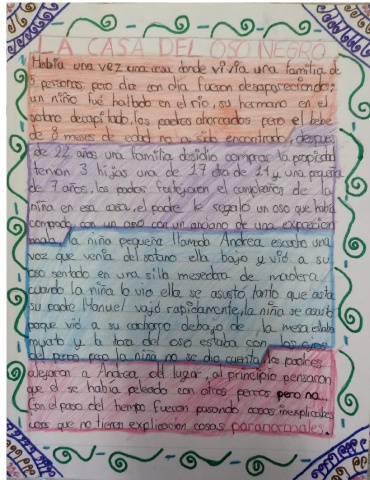 LA CASA DEL OSO NEGRO
Había una vez una casa donde vivía una familia de
5 personas, pero día con día fueron desapareciendo;
un niño fué hallado en el río, su hermano en el
sotano decapitado, los padres ahorcados pero el bebe
de 8 meses de edad no a sido encontrado, después
de 22 años una familia desidio comprar la propiedad
tenian 3 hijas una de 17 otra de 11 y una pequeña
de 7 años, los padres festejaron el cumpleaños de la
niña en esa casa, el padre le regaló un oso que había
comprado con un anciano de una expreción
la niña pequeña llamada Andrea escucho una
voz que venía del sotano ella bajo y vió a su
oso sentado en una silla mesedora de madera,
cuando la niña lo vio ella se asustó tanto que asta
su padre Manuel vajó rapidamente, la niña se asustó
porque vió a su cachorro debajo de la mesa estaba
muerto y la boca del oso estaba con los
del perro pero la niña no se dio cuenta, los padres
alejaron a Andrea del lugar, al principio pensaron
que el se había peleado con otros perros pero no...
Con el paso del tiempo fueron pasando cosas inexplicables
cosas que no tienen explicacion cosas paranormales.